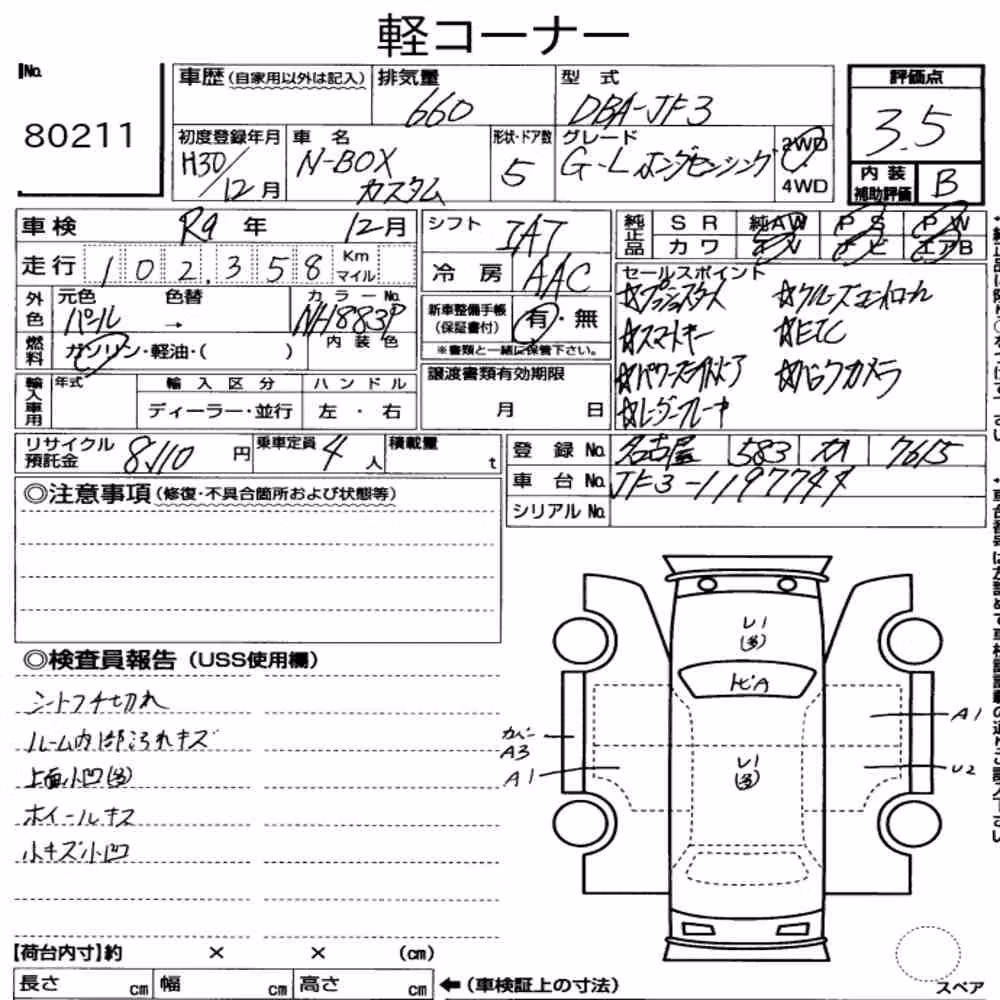 軽コーナー
No. 80211
車歴 (自家用以外は記入)
排気量 660
型式 DBA-JF3
評価点 3.5
初度登録年月 H30/12月
車名 N-BOX カスタム
形状・ドア数 5
グレード G-L ホンダセンシング
2WD
4WD
内装補助評価 B
車検 R9年 12月
シフト IAT
純正品 SR 純AW PS PW
カワ TV ナビ エアB
走行 102,358 Km マイル
冷房 AAC
セールスポイント
☆プッシュスタート ☆クルーズコントロール
☆スマートキー ☆ETC
☆パワースライドドア ☆バックカメラ
☆レーダーブレーキ
外色 元色 パール 色替 →
カラーNo. NH883P
内装色
新車整備手帳 (保証書付) 有・無
※書類と一緒に保管下さい。
燃料 ガソリン・軽油・( )
輸入車用 年式 輸入区分 ハンドル
ディーラー・並行 左・右
譲渡書類有効期限
月 日
リサイクル預託金 8,110円
乗車定員 4人
積載量 t
登録No. 名古屋 583 カ 7615
車台No. JF3-1197744
シリアルNo.
◎注意事項 (修復・不具合箇所および状態等)
◎検査員報告 (USS使用欄)
シートフチ切れ
ルーム内部汚れキズ
上面小凹(多)
ホイールキズ
小キズ小凹
レ1
(多)
トビA
A1
カバー
A3
A1
レ1
(多)
U2
【荷台内寸】約 × × (cm)
長さ cm 幅 cm 高さ cm
←(車検証上の寸法)
スペア